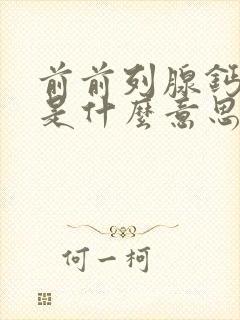 前前列腺鈣
是什麼意思
何一柯